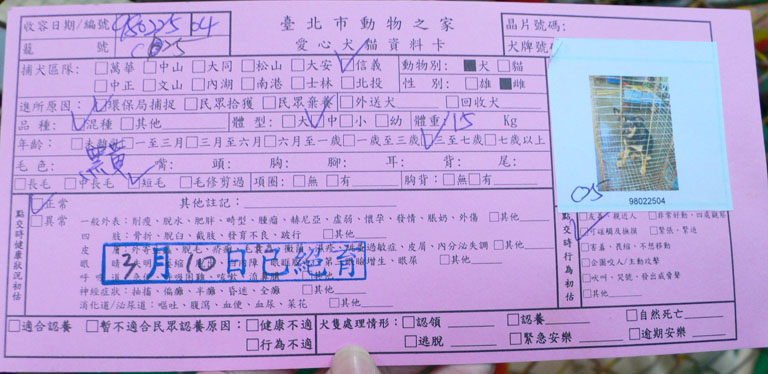 收容日期/編號 980225 04 臺北市動物之家 晶片號碼:
籠 號 C 05 愛心犬貓資料卡 犬牌號
捕犬區隊: □萬華 □中山 □大同 □松山 □大安 ☑信義 動物別: ■犬 □貓
□中正 □文山 □內湖 □南港 □士林 □北投 性 別: □雄 ■雌
進所原因: ☑環保局捕捉 □民眾拾獲 □民眾棄養 □外送犬 □回收犬
品 種: ☑混種 □其他 體 型: □大 ☑中 □小 □幼 體重: 15 Kg
年齡: □未離乳 □一至三月 □三月至六月 □六月至一歲 □一歲至三歲 ☑三至七歲 □七歲以上
毛 色: 黑黃 嘴: 頭: 胸: 腳: 耳: 背: 尾:
□長毛 □中長毛 ☑短毛 □毛修剪過 項圈: □無 □有 胸背: □無 □有
05
98022504
點交時健康狀況初估
☑正常 其他註記:
□異常 一般外表: 削瘦、脫水、肥胖、畸型、腫瘤、赫尼亞、虛弱、懷孕、發情、脹奶、外傷 □其他
四 肢: 骨折、脫臼、截肢、發育不良、跛行 □其他
皮 膚: 脫毛、皮屑、內分泌失調 □其他
3月10日已絕育
眼 增生、眼屎 □其他
呼 □其他
神經症狀: 抽搐、偏癱、半癱、昏迷、全癱 □其他
消化道/泌尿道: 嘔吐、腹瀉、血便、血尿、菜花 □其他
點交時行為初估
友善、親近人 □非常好動、四處觀看
可碰觸及撫摸 □緊張、緊迫
□害羞、畏縮、不想移動
□企圖咬人/主動攻擊
□吠叫、哭號、發出威脅聲
□其他
□適合認養 □暫不適合民眾認養原因: □健康不適 犬隻處理情形: □認領 □認養 □自然死亡
□行為不適 □逃脫 □緊急安樂 □逾期安樂